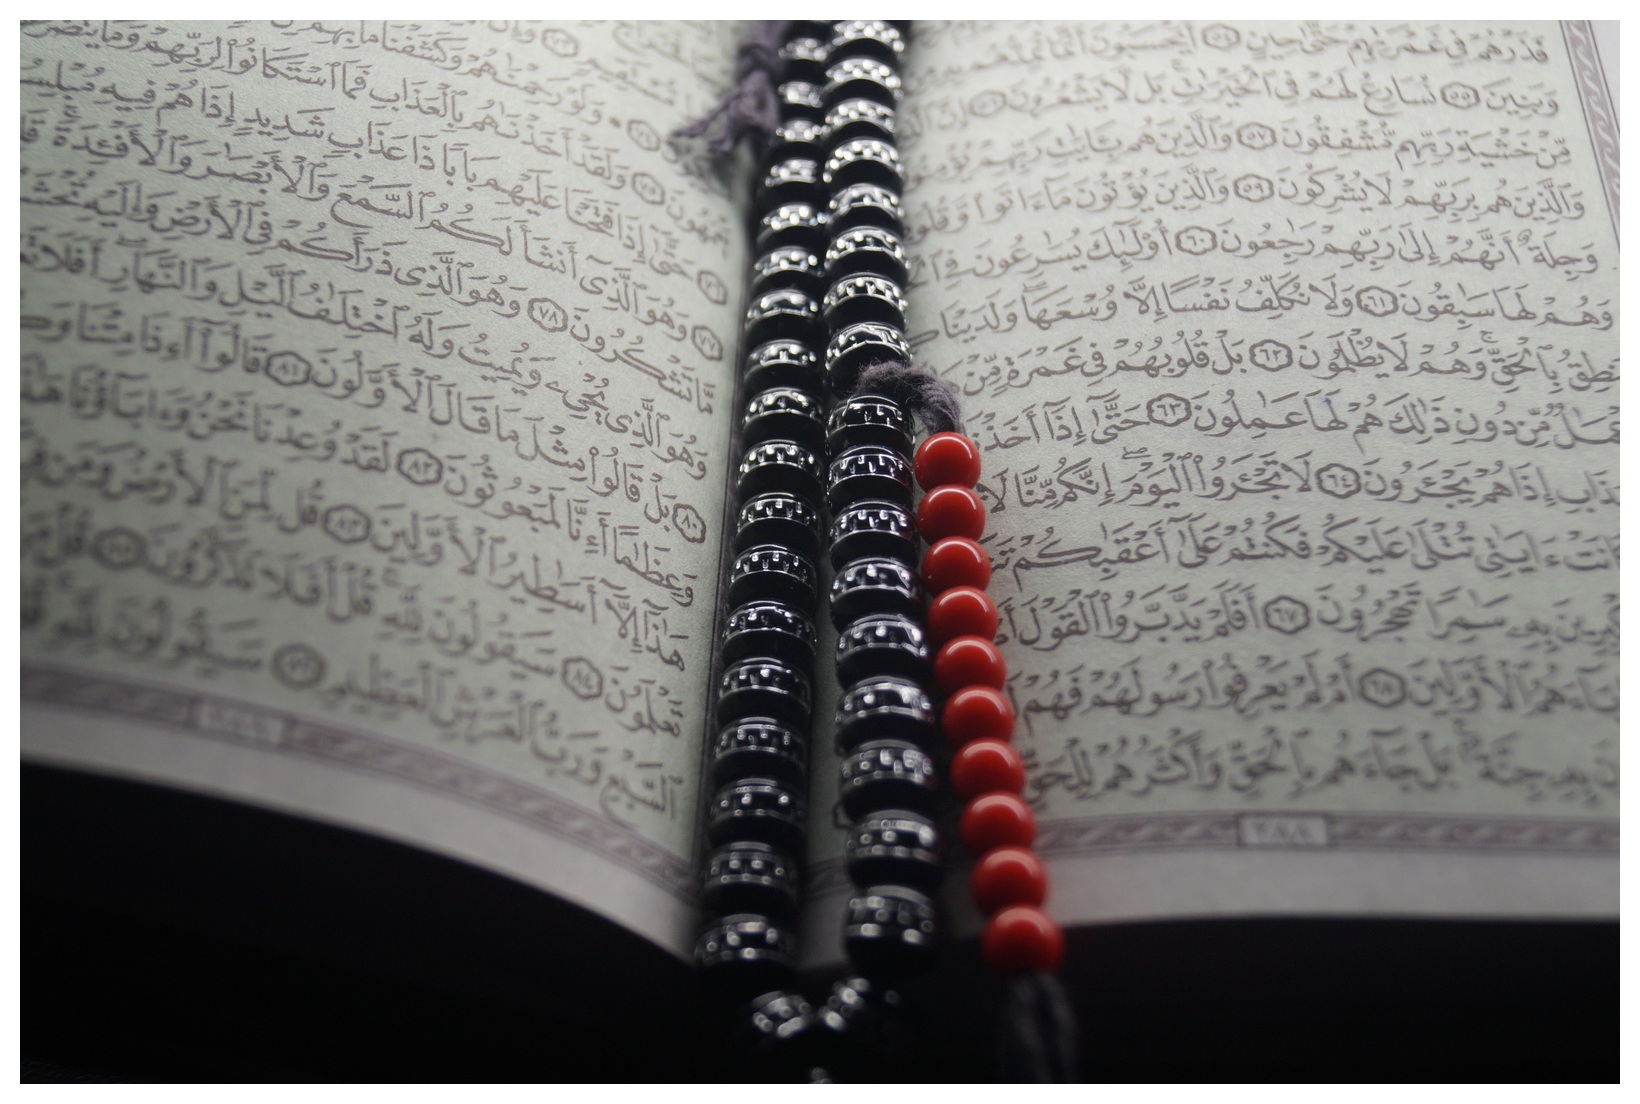 فَذَرْهُمْ فِى غَمْرَتِهِمْ حَتَّىٰ حِينٍ ٥٤ أَيَحْسَبُونَ أَنَّمَا نُمِدُّهُم
وَبَنِينَ ٥٥ نُسَارِعُ لَهُمْ فِى ٱلْخَيْرَٰتِ بَل لَّا يَشْعُرُونَ ٥٦ إِنَّ
مِّنْ خَشْيَةِ رَبِّهِم مُّشْفِقُونَ ٥٧ وَٱلَّذِينَ هُم بِـَٔايَٰتِ رَبِّهِمْ
وَٱلَّذِينَ هُم بِرَبِّهِمْ لَا يُشْرِكُونَ ٥٩ وَٱلَّذِينَ يُؤْتُونَ مَآ ءَاتَوا۟ وَّقُلُو
وَجِلَةٌ أَنَّهُمْ إِلَىٰ رَبِّهِمْ رَٰجِعُونَ ٦٠ أُو۟لَٰٓئِكَ يُسَٰرِعُونَ فِى
وَهُمْ لَهَا سَٰبِقُونَ ٦١ وَلَا نُكَلِّفُ نَفْسًا إِلَّا وُسْعَهَا ۖ وَلَدَيْنَا
نطِقُ بِٱلْحَقِّ ۚ وَهُمْ لَا يُظْلَمُونَ ٦٢ بَلْ قُلُوبُهُمْ فِى غَمْرَةٍ مِّنْ
عْمَٰلٌ مِّن دُونِ ذَٰلِكَ هُمْ لَهَا عَٰمِلُونَ ٦٣ حَتَّىٰٓ إِذَآ أَخَذْنَ
عَذَابِ إِذَا هُمْ يَجْـَٔرُونَ ٦٤ لَا تَجْـَٔرُوا۟ ٱلْيَوْمَ ۖ إِنَّكُم مِّنَّا لَا
انَتْ ءَايَٰتِى تُتْلَىٰ عَلَيْكُمْ فَكُنتُمْ عَلَىٰٓ أَعْقَٰبِكُمْ تَن
كْبِرِينَ بِهِۦ سَٰمِرًا تَهْجُرُونَ ٦٧ أَفَلَمْ يَدَّبَّرُوا۟ ٱلْقَوْلَ أَم
ءَابَآءَهُمُ ٱلْأَوَّلِينَ ٦٨ أَمْ لَمْ يَعْرِفُوا۟ رَسُولَهُمْ فَهُمْ
نَ بِهِۦ جِنَّةٌۢ ۚ بَلْ جَآءَهُم بِٱلْحَقِّ وَأَكْثَرُهُمْ لِلْحَقِّ
٣٨٨
وَلَوْ رَحِمْنَٰهُمْ وَكَشَفْنَا مَا بِهِم
وَلَقَدْ أَخَذْنَٰهُم بِٱلْعَذَابِ فَمَا ٱسْتَكَانُوا۟ لِرَبِّهِمْ وَمَا يَتَضَرَّ
عُونَ ٧٦ حَتَّىٰٓ إِذَا فَتَحْنَا عَلَيْهِم بَابًا ذَا عَذَابٍ شَدِيدٍ إِذَا هُمْ فِيهِ مُبْلِسُ
٧٧ وَهُوَ ٱلَّذِىٓ أَنشَأَ لَكُمُ ٱلسَّمْعَ وَٱلْأَبْصَٰرَ وَٱلْأَفْـِٔدَةَ ۚ قَلِ
مَّا تَشْكُرُونَ ٧٨ وَهُوَ ٱلَّذِى ذَرَأَكُمْ فِى ٱلْأَرْضِ وَإِلَيْهِ تُحْشَ
وَهُوَ ٱلَّذِى يُحْىِۦ وَيُمِيتُ وَلَهُ ٱخْتِلَٰفُ ٱلَّيْلِ وَٱلنَّهَارِ ۚ أَفَلَا تَعْ
٨٠ بَلْ قَالُوا۟ مِثْلَ مَا قَالَ ٱلْأَوَّلُونَ ٨١ قَالُوٓا۟ أَءِذَا مِتْنَا وَكُ
وَعِظَٰمًا أَءِنَّا لَمَبْعُوثُونَ ٨٢ لَقَدْ وُعِدْنَا نَحْنُ وَءَابَآؤُنَا هَٰذَ
هَٰذَآ إِلَّآ أَسَٰطِيرُ ٱلْأَوَّلِينَ ٨٣ قُل لِّمَنِ ٱلْأَرْضُ وَمَن فِي
تَعْلَمُونَ ٨٤ سَيَقُولُونَ لِلَّهِ ۚ قُلْ أَفَلَا تَذَكَّرُونَ ٨٥ قُلْ
ٱلسَّبْعِ وَرَبُّ ٱلْعَرْشِ ٱلْعَظِيمِ ٨٦ سَيَقُولُونَ لِلَّهِ ۚ قُ